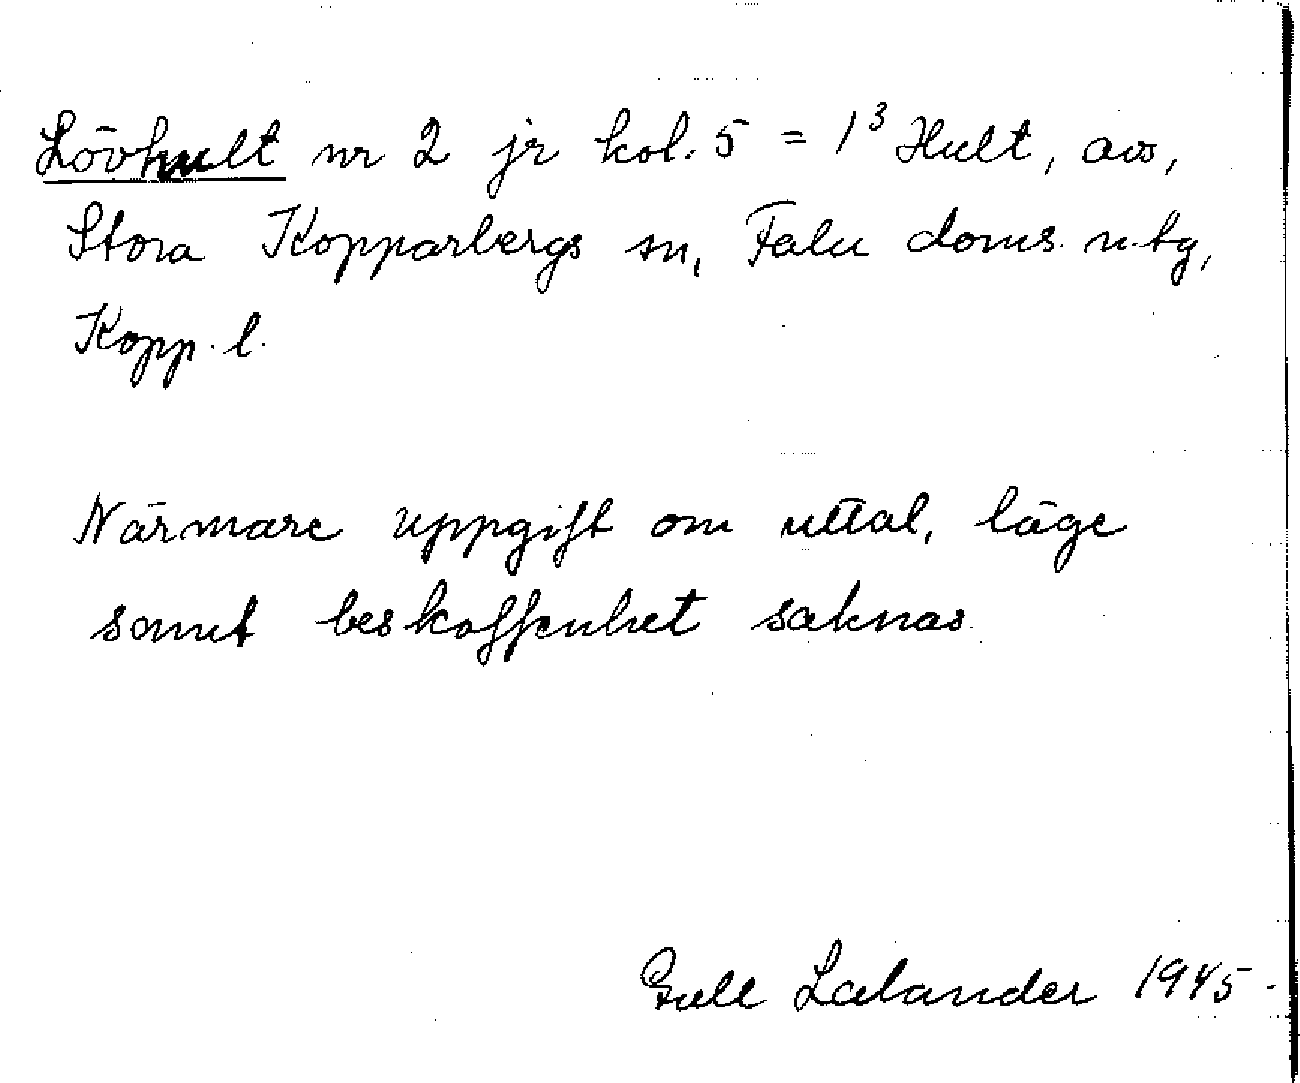 Lövhult nr 2 jr kol. 5 = 1³ Hult, avs,
Stora Kopparbergs sn, Falu doms. n. tg,
Kopp. l.
Närmare uppgift om uttal, läge
samt beskaffenhet saknas.
Gull Lalander 1945.